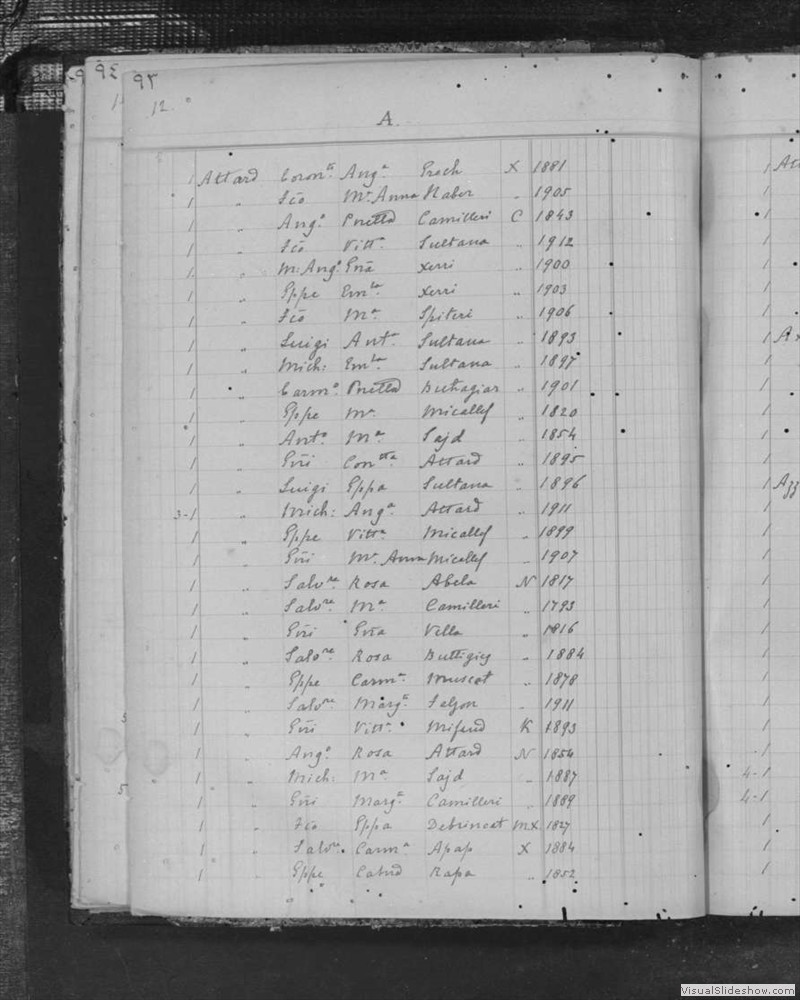 ٩٤ ٩٢
12.
A.
1 Attard Coron.ta Ang.a Grech X 1881
1 „ Fco M.a Anna Naber „ 1905
1 „ Ang.o Camilleri C 1843
1 „ Fco Vitt.a Sultana „ 1912
1 „ M: Ang.o Gña Xerri „ 1900
1 „ Gppe Em.la Xerri „ 1903
1 „ Fco M.a Spiteri „ 1906
1 „ Luigi Ant.a Sultana „ 1893
1 „ Mich: Em.la Sultana „ 1897
1 „ Carm.o Buttagiar „ 1901
1 „ Gppe M.a Micallef „ 1820
1 „ Ant.o M.a Sajd „ 1854
1 „ Gñi Con.tta Attard „ 1895
1 „ Luigi Gppa Sultana „ 1896
3-1 „ Mich: Ang.a Attard „ 1911
1 „ Gppe Vitt.a Micallef „ 1899
1 „ Gñi M.a Anna Micallef „ 1907
1 „ Salv.re Rosa Abela N 1817
1 „ Salv.re M.a Camilleri „ 1793
1 „ Gñi Gña Vella „ 1816
1 „ Salv.re Rosa Buttigieg „ 1884
1 „ Gppe Carm.a Muscat „ 1878
1 „ Salv.re Marg.ta „ 1911
1 „ Gñi Vitt.a Mifsud K 1893
1 „ Ang.o Rosa Attard N 1854
1 „ Mich: M.a Sajd „ 1887
1 „ Gñi Marg.ta Camilleri „ 1889
1 „ Fco Gppa Debrincat MX. 1827
1 „ Salv.re Carm.a Apap X 1884
1 „ Gppe Rapa „ 1852
VisualSlideshow.com